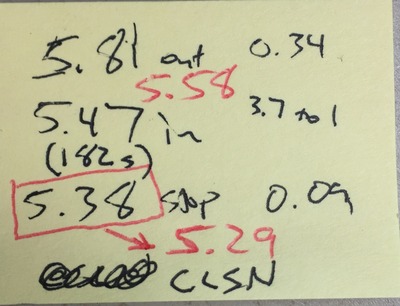 5.81 out 0.34
5.58
5.47 in 3.7 to 1
(182s)
5.38 stop 0.09
5.29
CLSN